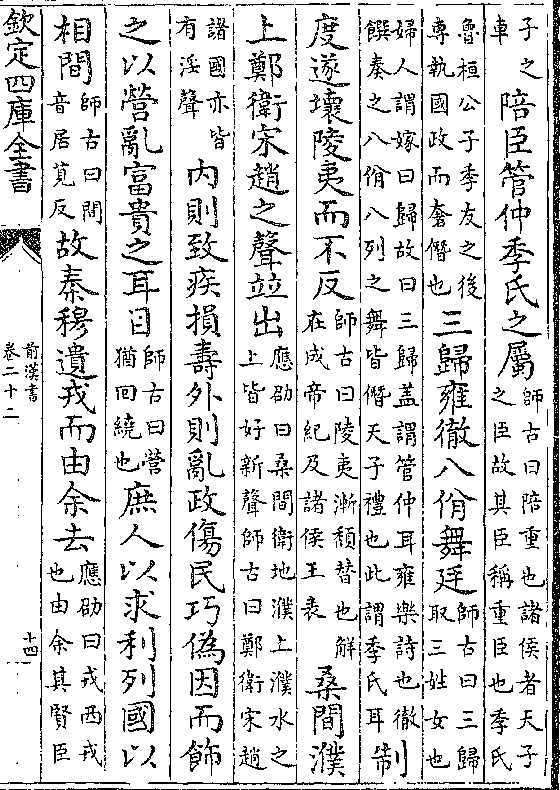 子之
車
陪臣管仲季氏之屬
師古曰陪重也諸侯者天子
之臣故其臣稱重臣也季氏
魯桓公子季友之後
專執國政而奢僭也
三歸雍徹八佾舞廷
師古曰三歸
取三姓女也
婦人謂嫁曰歸故曰三歸蓋謂管仲耳雍樂詩也徹
饌奏之八佾八列之舞皆僭天子禮也此謂季氏耳
制
度遂壞陵夷而不反
師古曰陵夷漸頽替也解
在成帝紀及諸侯王表
桑間濮
上鄭衛宋趙之聲並出
應劭曰桑間衛地濮上濮水之
上皆好新聲師古曰鄭衛宋趙
諸國亦皆
有淫聲
內則致疾損壽外則亂政傷民巧偽因而飾
之以營亂富貴之耳目
師古曰營
猶回繞也
庶人以求利列國以
相間
師古曰間
音居莧反
故秦穆遺戎而由余去
應劭曰戎西戎
也由余其賢臣
欽定四庫全書
前漢書
卷二十二
十四